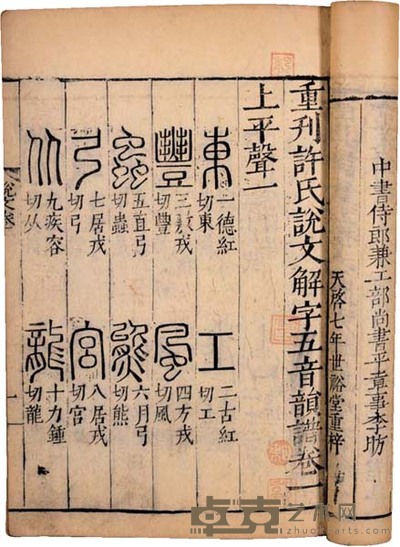 中書侍郎兼工部尚書平章事李昉
天啓七年世裕堂重梓
重刊許氏說文解字五音韻譜卷一
上平聲一
東 一德紅切東 工 二古紅切工
豐 三敷戎切豐 風 四方戎切風
蟲 五直弓切蟲 熊 六月弓切熊
弓 七居戎切弓 宮 八居戎切宮
从 九疾容切从 龍 十力鍾切龍
說文卷
一
卓克艺术网
zhuokearts.com